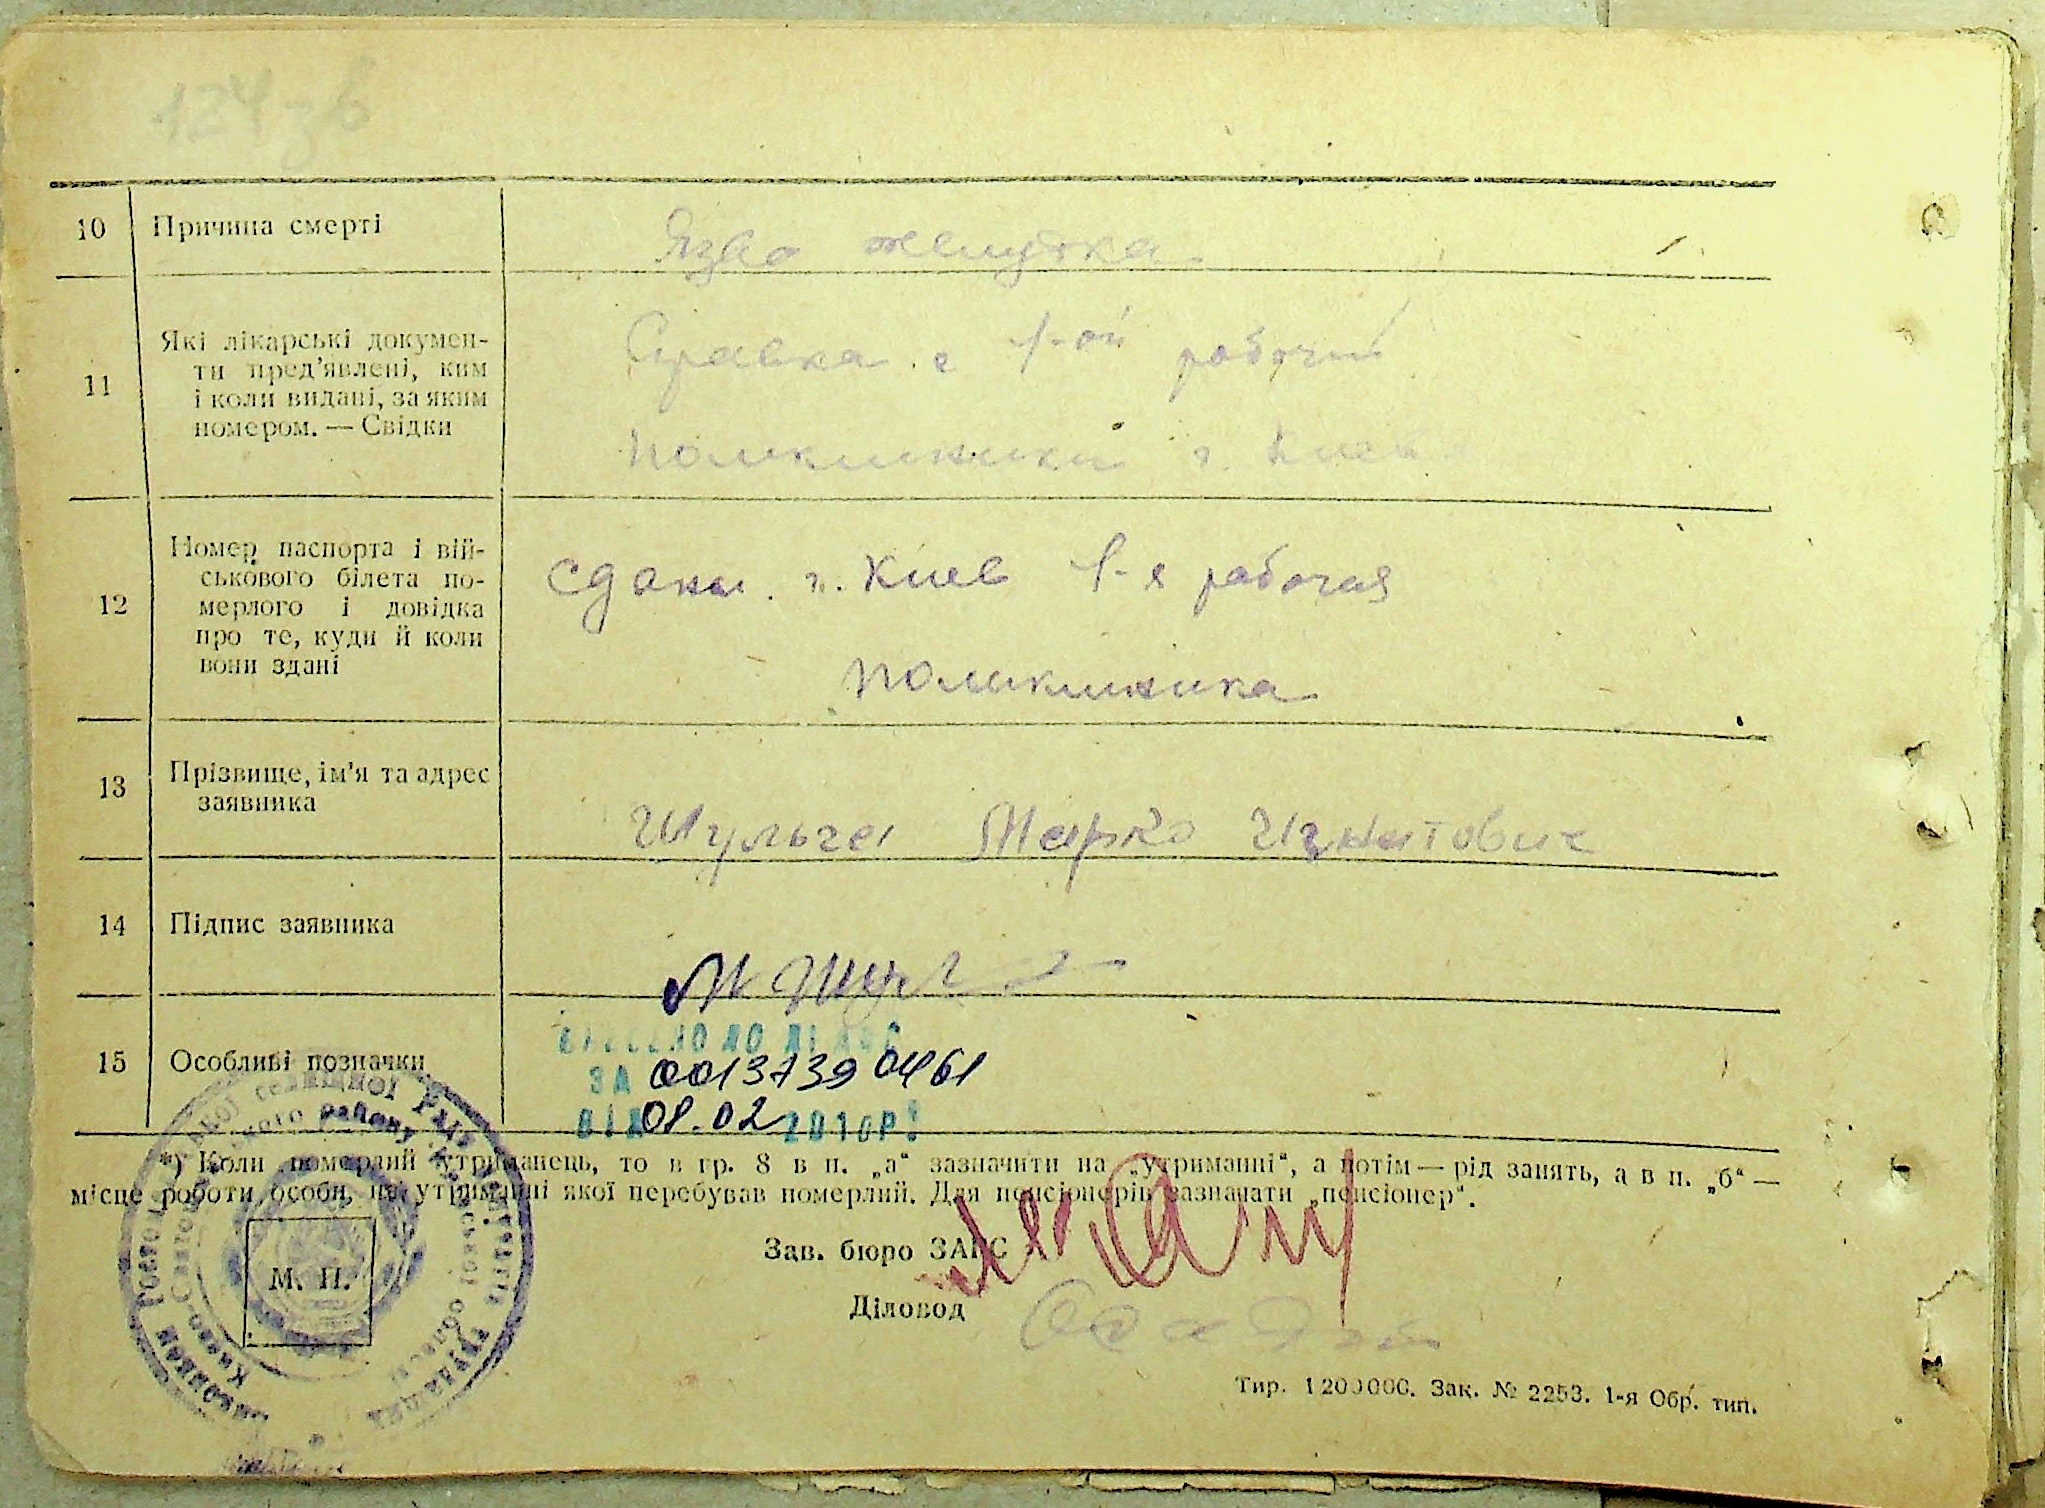 124 зв
10 Причина смерті
Язва желудка
11 Які лікарські докумен-
ти пред'явлені, ким
і коли видані, за яким
номером. — Свідки
Справка с 1-ой рабочий
поликлиники г. Киев
12 Номер паспорта і вій-
ськового білета по-
мерлого і довідка
про те, куди й коли
вони здані
Сданы. г. Киев 1-я рабочая
поликлиника
13 Прізвище, ім'я та адрес
заявника
Шульга Марко Игнатович
14 Підпис заявника
15 Особливі позначки
ЗА 00137390461
ВІД 08.02 2010Р.
*) Коли померлий утриманець, то в гр. 8 в п. „а“ зазначити на „утриманні“, а потім — рід занять, а в п. „б“ —
місце роботи особи, на утриманні якої перебував померлий. Для пенсіонерів зазначати „пенсіонер“.
Зав. бюро ЗАГС
М. П.
Діловод
Тир. 1200000. Зак. № 2253. 1-я Обр. тип.